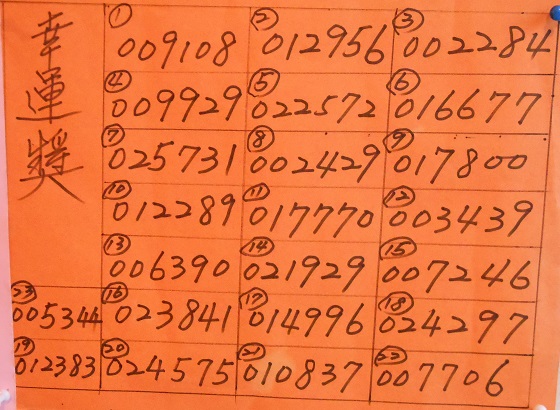 幸運獎
① 009108 ② 012956 ③ 002284
④ 009929 ⑤ 022572 ⑥ 016677
⑦ 025731 ⑧ 002429 ⑨ 017800
⑩ 012289 ⑪ 017770 ⑫ 003439
⑬ 006390 ⑭ 021929 ⑮ 007246
㉓ 005344 ⑯ 023841 ⑰ 014996 ⑱ 024297
⑲ 012383 ⑳ 024575 ㉑ 010837 ㉒ 007706